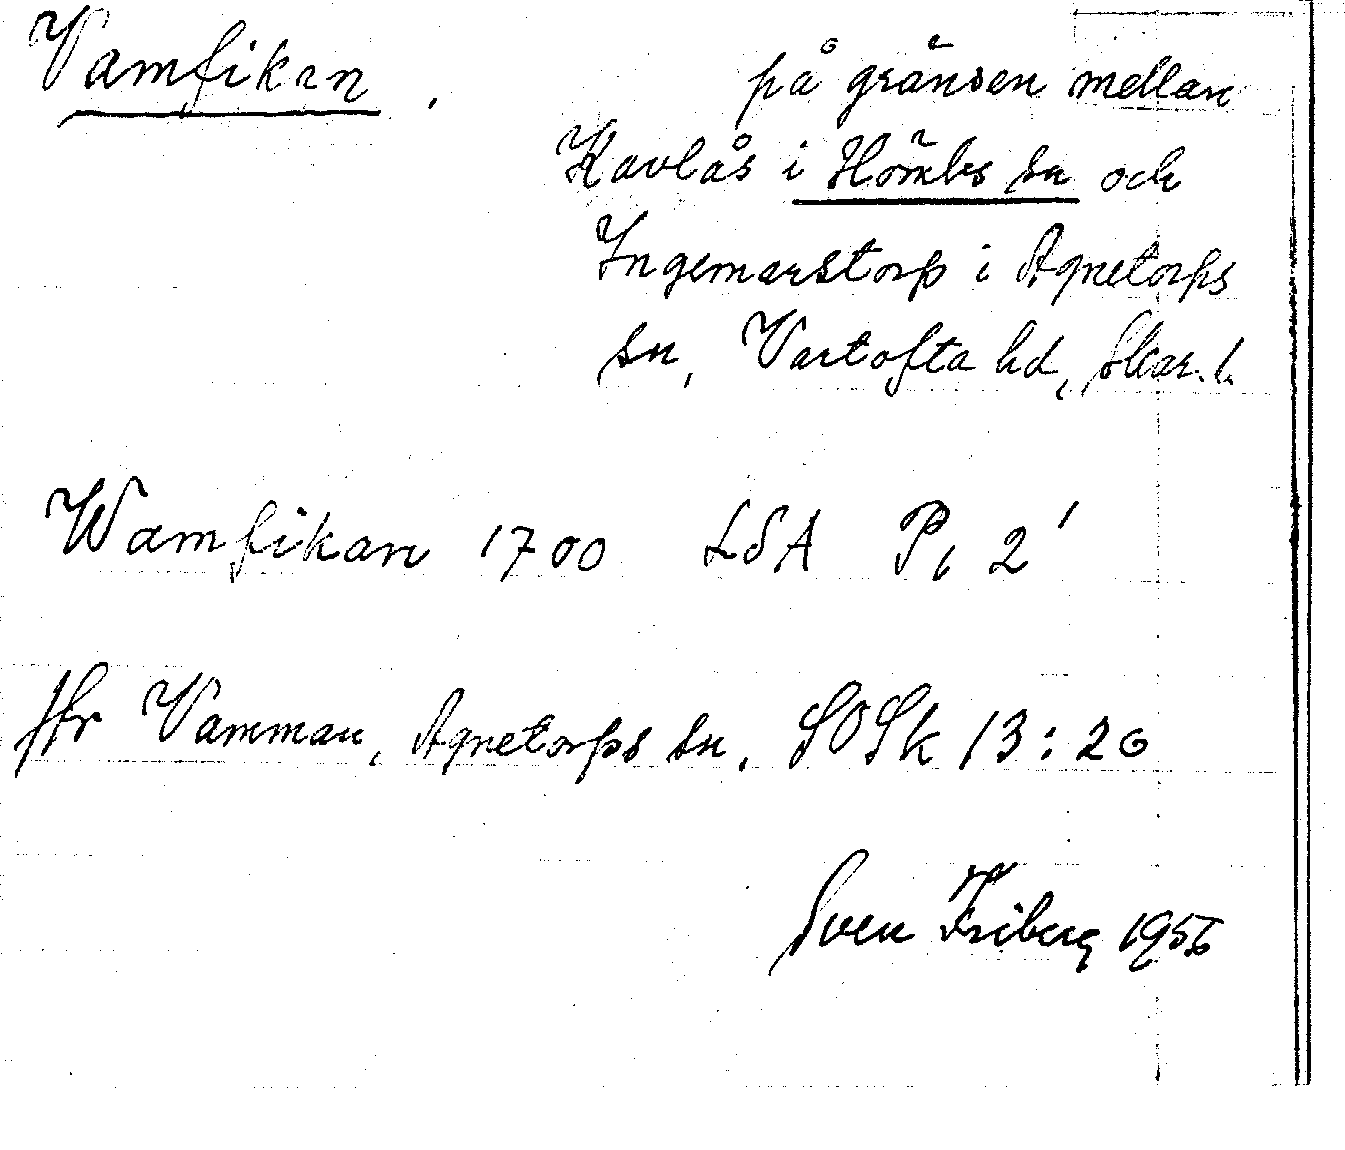 Vamfikan.
på gränsen mellan
Kavlås i Hömbs sn och
Ingemarstorp i Agnetorps
sn, Vartofta hd, Skar. l.
Wamfikan 1700 LSA P, 2'
Jfr Vamman, Agnetorps sn. SOSk 13:26
Sven Friberg 1956